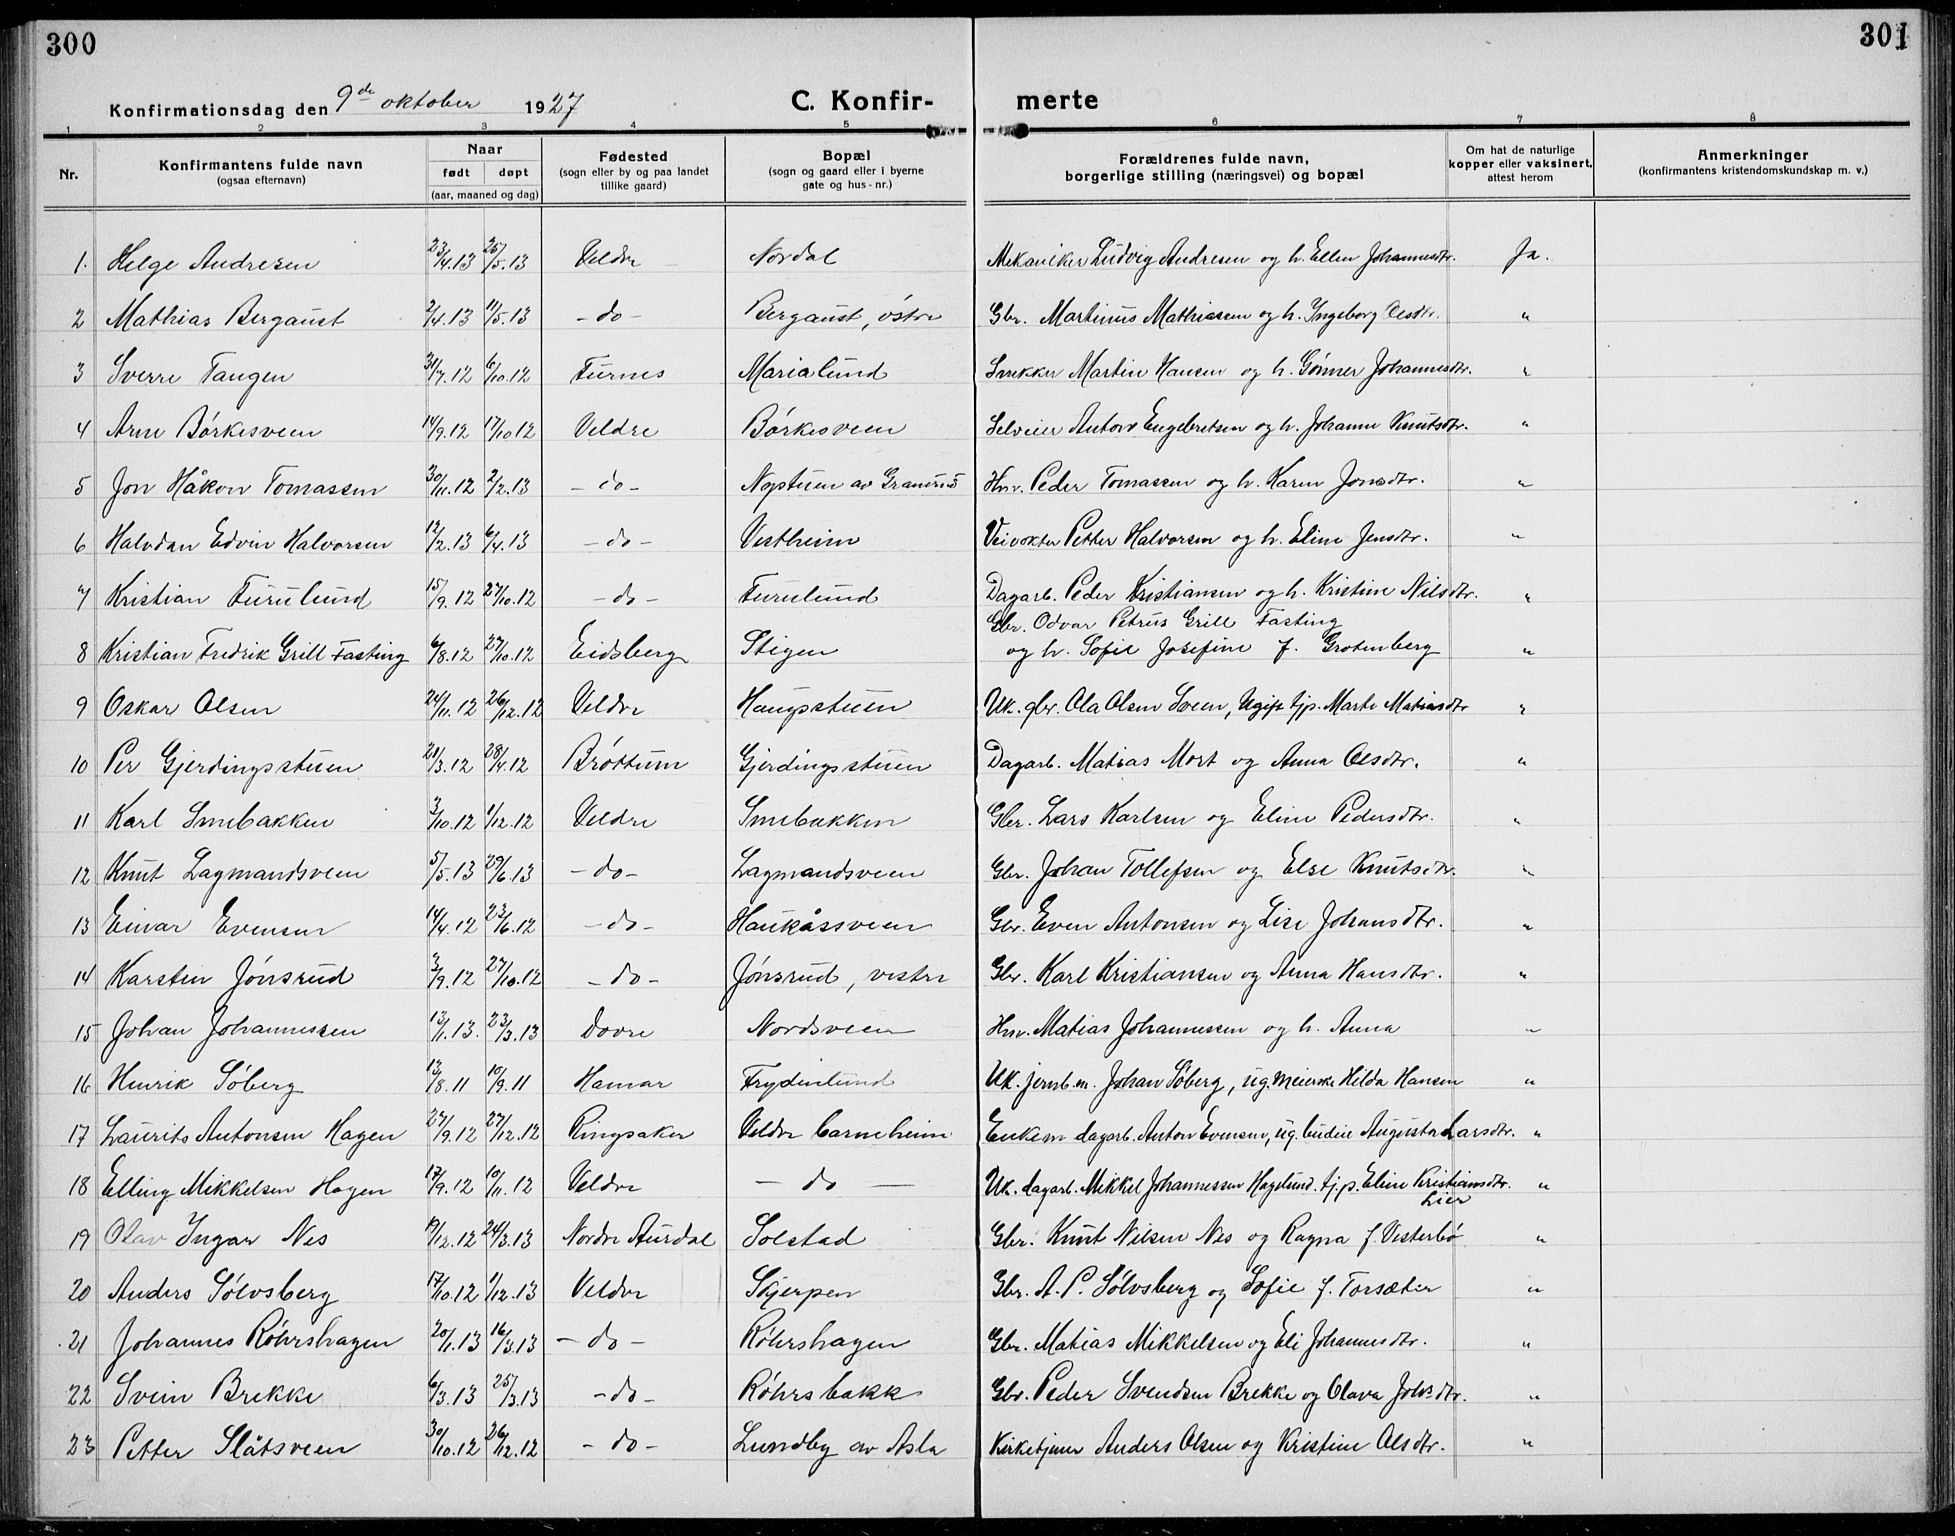 300
301
Konfirmationsdag den 9de oktober 1927
C. Konfir-
merte
1 2 3 4 5 6 7 8
Nr. | Konfirmantens fulde navn (ogsaa efternavn) | Naar født døpt (aar, maaned og dag) | Fødested (sogn eller by og paa landet tillike gaard) | Bopæl (sogn og gaard eller i byerne gate og hus-nr.) | Forældrenes fulde navn, borgerlige stilling (næringsvei) og bopæl | Om hat de naturlige kopper eller vaksinert, attest herom | Anmerkninger (konfirmantens kristendomskundskap m. v.)
1. Helge Andresen 23/4.13 25/5.13 Veldre Nordal Mekaniker Ludvig Andresen og h. Ellen Johannesdtr. Ja.
2 Mathias Bergaust 2/4.13 11/5.13 - do - Bergaust, östre Gbr. Martinus Mathiassen og h. Ingeborg Olsdtr. "
3 Sverre Tangen 31/7.12 6/10.12 Furnes Marialund Snekker Martin Hansen og h. Gönner Johannesdtr. "
4 Arne Börkesveen 14/9.12 17/10 12 Veldre Börkesveen Selveier Anton Engebretsen og h. Johanne Knutsdtr. "
5 Jon Håkon Tomassen 30/11.12 2/2.13 - do - Nystuen av Hmv. Peder Tomassen og h. Karen Jonsdtr. "
6 Halvdan Edvin Halvorsen 12/2.13 6/4.13 - do - Vestheim Veivokter Petter Halvorsen og h. Eline Jensdtr. "
7 Kristian Furulund 15/9.12 27/10.12 - do - Furulund Dagarb. Peder Kristiansen og h. Kristine Nilsdtr. "
8 Kristian Fredrik Grill Fasting 6/8.12 27/10.12 Eidsberg Stigen Gbr. Odvar Petrus Grill Fasting
og h. Sofie Josefine f. Grotenberg "
9 Oskar Olsen 24/11.12 26/12.12 Veldre Haugstuen Uk. gbr. Ola Olsen Sveen, Ugift tjp. Marte Matiasdtr "
10 Per Gjerdingsstuen 21/3.12 28/4.12 Bröttum Gjerdingsstuen Dagarb. Matias Mort og Anna Olsdtr. "
11 Karl Smebakken 3/10.12 1/12.12 Veldre Smebakken Gbr. Lars Karlsen og Eline Pedersdtr. "
12 Knut Lagmandsveen 5/5.13 29/6.13 - do - Lagmandsveen Gbr. Johan Tollefsen og Else Knutsdtr. "
13 Einar Evensen 14/4.12 23/6.12 - do - Haukåssveen Gbr. Even Antonsen og Lise Johansdtr. "
14 Karsten Jönsrud 3/9.12 27/10.12 - do - Jönsrud, vestre Gbr. Karl Kristiansen og Anna Hansdtr. "
15 Johan Johannessen 13/1.13. 23/3.13 Dovre Nordsveen Hmv. Matias Johannessen og h. Anna "
16 Henrik Söberg 13/8.11 10/9.11 Hamar Frydenlund Uk. jernb.m. Johan Söberg, ug. meierske Hilda Hansen "
17 Laurits Antonsen Hagen 27/9.12 27/12.12 Ringsaker Veldre barneheim Enkem dagarb. Anton Evensen, ug. budeie Augusta Larsdtr. "
18 Elling Mikkelsen Hagen 17/9.12 10/11.12 Veldre - do - Uk. dagarb. Mikkel Johannessen Hagelund. tj.p. Eline Kristiansdtr.
Lier "
19 Olav Ingar Nes 19/12.12 24/3.13 Nordre Aurdal Solstad Gbr. Knut Nilsen Nes og Ragna f. Vesterbø "
20 Anders Sölvsberg 17/10.12 1/12.13 Veldre Skjerpen Gbr. A. P. Sölvsberg og Sofie f. Torsæter "
21 Johannes Röhrshagen 20/1.13 16/3.13 - do - Röhrshagen Gbr. Matias Mikkelsen og Eli Johannesdtr. "
22 Svein Brekke 6/3.13 25/3.13 - do - Röhrsbakk Gbr. Peder Svendsen Brekke og Olava Johsdtr. "
23 Petter Slåtsveen 30/10.12 26/12.12 - do - Lundby av Asla Kirketjener Anders Olsen og Kristine Olsdtr. "